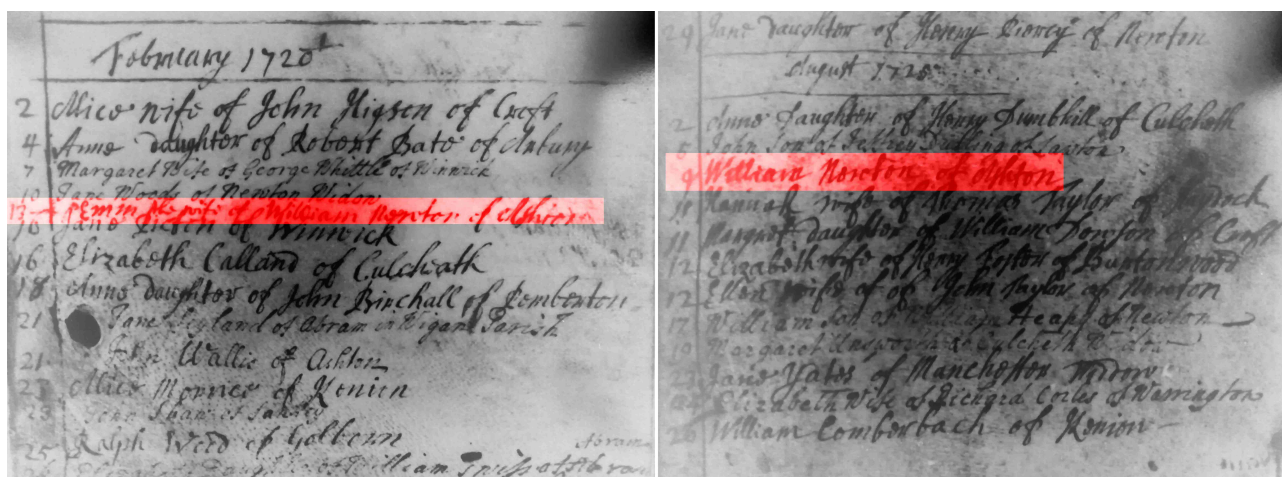 February 1720
2 Alice wife of John Higson of Croft
4 Anne daughter of Robert Bate of Arbury
7 Margaret Wife of George Whittle of Winwick
10 Jane Woods of Newton Widow
13 wife of William Newton of Ashton
Jane of Winwick
16 Elizabeth Calland of Culcheath
18 Anne daughter of John Birchall of Pemberton
21 Jane of Abram in Wigan Parish
21 John Wallis of Ashton
23 Alice of Kenion
23 John of
25 Ralph Weed of Golborn
Abram
William of
29 Jane Daughter of Henry Piercy of Newton
August 1720
2 Anne Daughter of Henry Dumbhill of Culcheth
5 John Son of Jeffrey of
9 William Newton of Ashton
Hannah wife of Thomas Taylor of
11 Margret daughter of William of Croft
12 Elizabeth wife of Henry Foster of Burtonwood
12 Ellen wife of of John Taylor of Newton
17 William Son of William Heapy of Newton
19 Margaret Unsworth of Culcheth Widow
23 Jane Yates of Manchester Widow
Elizabeth Wife of Richard of Warrington
26 William Comberbach of Kenion